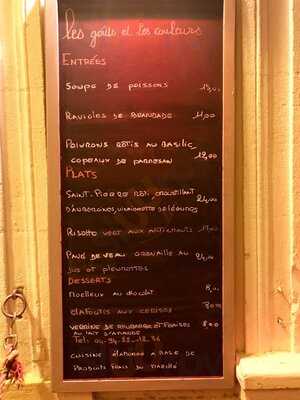 les goûts et les couleurs
ENTRÉES
SOUPE DE POISSONS
RAVIOLES DE BRANDADE 11,00
POIVRONS RÔTIS AU BASILIC
COPEAUX DE PARMESAN 12,00
PLATS
SAINT-PIERRE RÔTI CROUSTILLANT
D'AUBERGINES, VINAIGRETTE DE LÉGUMES 24,00
RISOTTO VERT AUX ARTICHAUTS
PAVÉ DE VEAU GRENAILLE AU
JUS ET PLEUROTTES 24,00
DESSERTS
MOELLEUX AU CHOCOLAT
CLAFOUTIS AUX CERISES
VERRINE DE RHUBARBE ET FRAISES
AU LAIT D'AMANDE
TEL: 04-94-22-12-26
CUISINE ÉLABORÉE À BASE DE
PRODUITS FRAIS DU MARCHÉ